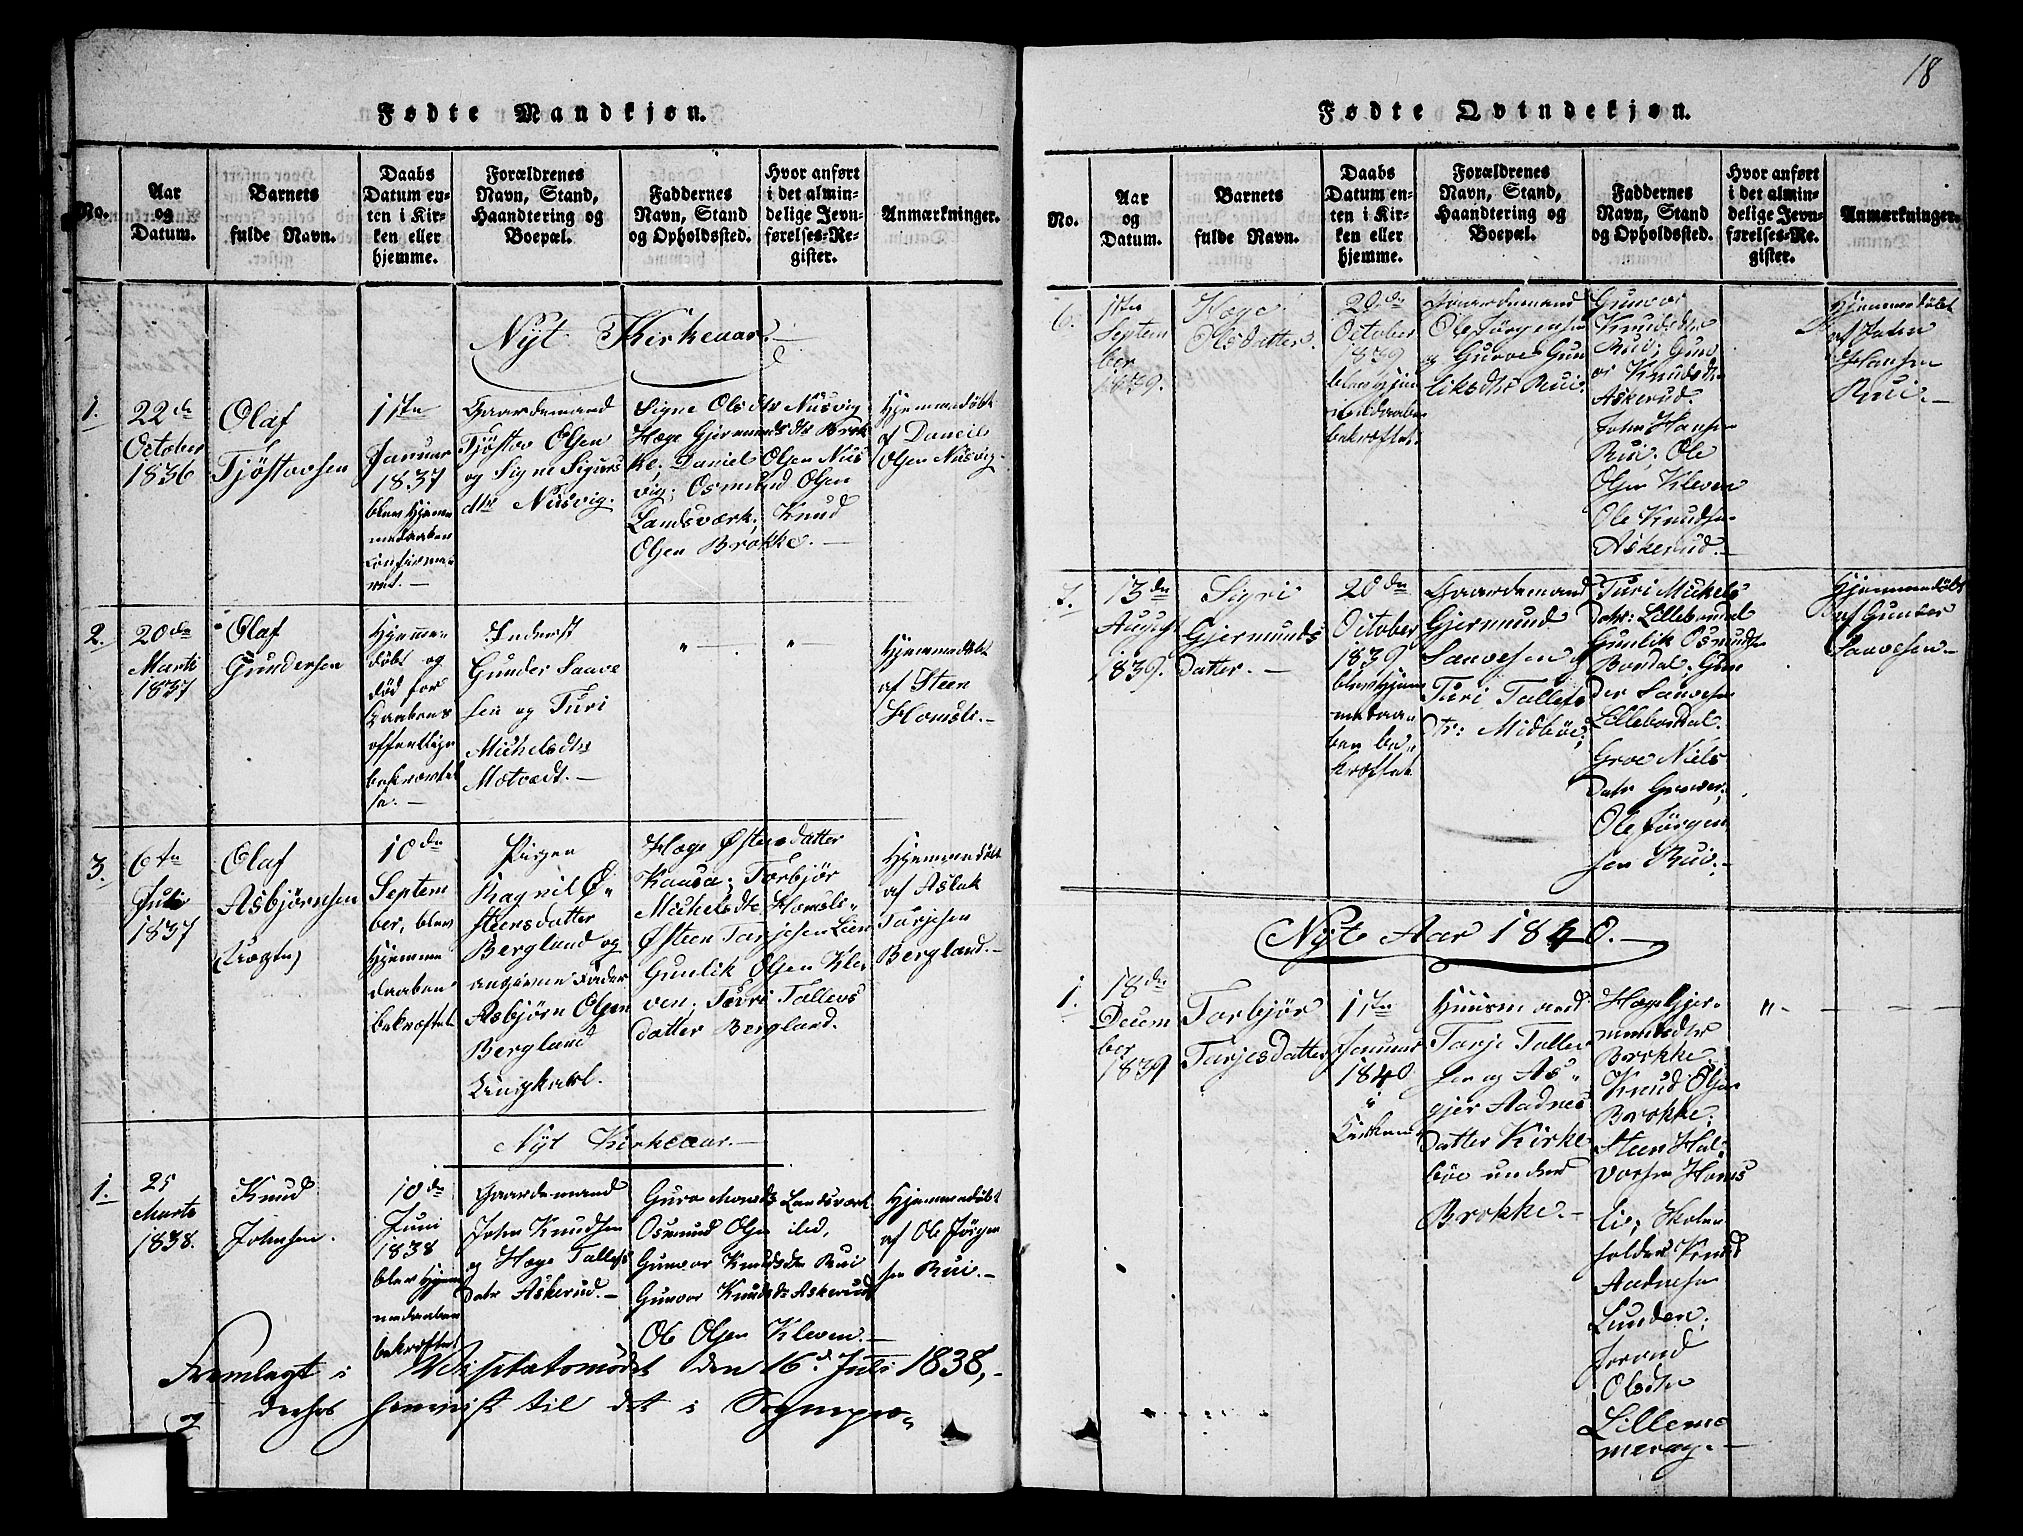 18
Fødte Mandkjøn.
No.
Aar
og
Datum.
Barnets
fulde Navn.
Daabs
Datum en-
ten i Kir-
ken eller
hjemme.
Forældrenes
Navn, Stand,
Haandtering og
Boepæl.
Faddernes
Navn, Stand
og Opholdssted.
Hvor anført
i det almin-
delige Jevn-
førelses-Re-
gister.
Anmærkninger.
Nyt Kirkeaar.
1.
22de
October
1836
Olaf
Tjöstavsen
1ste
Januar
1837
blev Hjemme
medaaben
confirme-
ret.
Gaardemand
Tjöstov Olsen
og Signe Sigurs
dtr Nusvig.
Signe Olsdtr Nusvig
Hæge Gjermundsdtr Brok
ke; Daniel Olsen Nus
vig; Osmund Olsen
Landsværk; Knud
Olsen Brokke.
Hjemmedöbt
af Daneil
Olsen Nusvig
2.
20de
Marti
1837
Olaf
Gundersen
Hjemme
döbt og
död for
Daabens
offentlige
bekræftel
se.
Inderst
Gunder Saave
sen og Turi
Michelsdtr
Motvedt.
" "
Hjemmedöbt
af Steen
Homsli.
3.
6te
Juli
1837
Olaf
Asbjörnsen
(Uægte)
10de
Septem
ber, blev
Hjemme
daaben
bekræftet
Pigen
Ragnil Ö-
steensdatter
Bergland og
angivne Fader
Asbjörn Olsen
Bergland
Ungkarl.
Hæge Östensdatter
Kaasa; Torbjör
Michelsdtr Homsli
Östeen Tarjesen Lien
Gunlik Olsen Kle
ven; Turi Tallevs
datter Bergland.
Hjemmedöbt
af Aslak
Tarjesen
Bergland.
Nyt Kirkeaar.
1.
25
Marti
1838.
Knud
Johnsen.
10de
Juni
1838
blev Hjem
medaaben
bekræftet
Gaardemand
John Knudsen
og Hæge Tallefs
datr Askerud.
Guro Monsdtr Landsværk
Osmund Olsen ibid,
Gunvor Knudsdtr Rui
Gunvor Knudsdtr Askerud
Ole Olsen Kleven.
Hjemmedöbt
af Ole Jörgen
sen Rui.
Fremlagt i Visitatsmödet den 16de Juli 1838,
og derhos henvist til det i Sognepræ-
Fødte Qvindekjøn.
No.
Aar
og
Datum.
Barnets
fulde Navn.
Daabs
Datum en-
ten i Kir-
ken eller
hjemme.
Forældrenes
Navn, Stand,
Haandtering og
Boepæl.
Faddernes
Navn, Stand
og Opholdssted.
Hvor anført
i det almin-
delige Jevn-
førelses-Re-
gister.
Anmærkninger.
6.
1ste
Septem
ber
1839.
Hæge
Olsdatter.
20de
October
1839
blev Hjem
medaaben
bekræftet.
Gaardemand
Ole Jörgensen
og Gurve Gun
liksdtr Rui
Gunvor
Knudsdtr
Rui; Gun
or Knudsdtr
Askerud
John Hansen
Rui; Ole
Olsen Kleven
Ole Knudsen
Askerud.
Hjemmedöbt
af John
Hansen
Rui.
7.
13de
August
1839.
Sigri
Gjermunds
datter.
20de
October
1839
blev Hjem
medaa-
ben be-
kræftet
Gaardemand
Gjermund
Saavesen og
Turi Tallefs
Dtr: Midböe;
Turi Michels
datr: Lillebondal
Gunlik Osmundsen
Bondal; Gun
der Saavesen
Lillebondal.
Groe Niels
datr Gunder;
Ole Jörgen
sen Rui.
Hjemmedöbt
af Gunder
Saavesen
Nyt Aar 1840.
1.
18de
Decem
ber
1839
Torbjör
Tarjesdatter
1ste
Januar
1840
i
Kirken
Huusmand
Tarje Talle
sen og As-
gjer Aadnes
datter Kirke
böe under
Brokke.
Hæge Gjer-
mundsdtr
Brokke
Knud Olsen
Brokke;
Steen Hal-
vorsen Homs
li; Skole
holder Knud
Aadnesen
Lunden;
Jorand
Olsdtr
Lillemo
meroy.
"